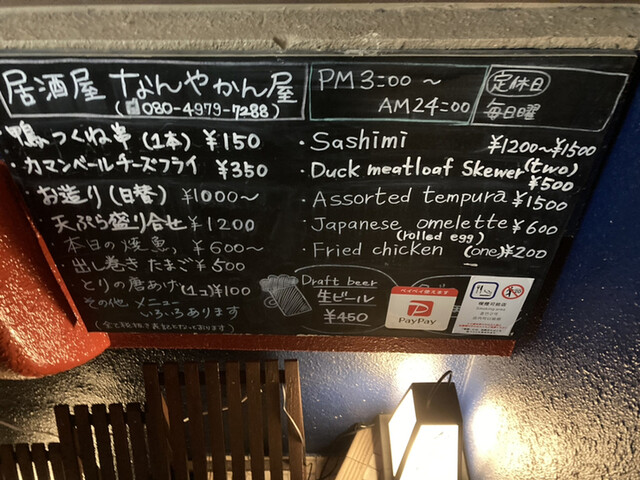 居酒屋 なんやかん屋
(📱080-4979-7288)
PM3:00 ～
AM24:00
定休日
毎日曜
・鴨つくね串 (1本) ¥150
・カマンベールチーズフライ ¥350
・お造り (日替) ¥1000～
・天ぷら盛り合せ ¥1200
・本日の焼魚 ¥600～
・出し巻きたまご ¥500
・とりの唐あげ (1コ) ¥100
・その他 メニュー
いろいろあります
・Sashimi ¥1200～¥1500
・Duck meatloaf Skewer (two) ¥500
・Assorted tempura ¥1500
・Japanese omelette ¥600
(rolled egg)
・Fried chicken (one) ¥200
Draft beer
生ビール
¥450
ペイペイ使えます
PayPay
喫煙可能店
Smoking area